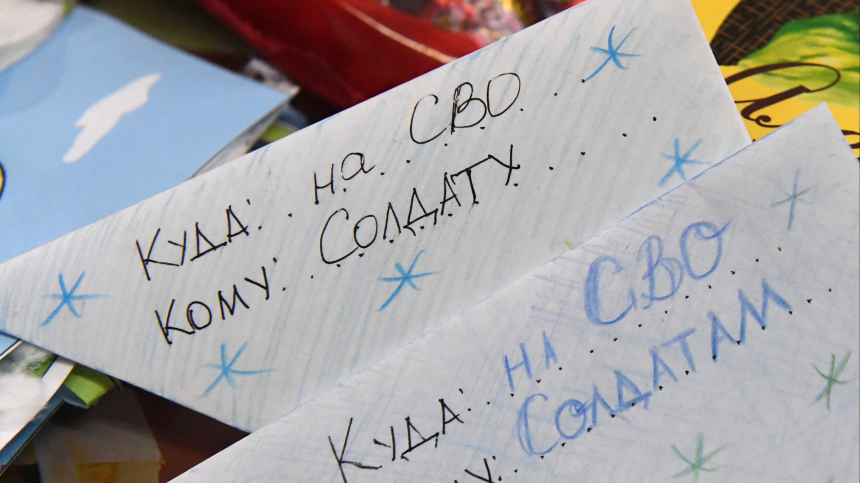 Куда: на СВО
Кому: Солдату
Куда: на СВО
Солдатам